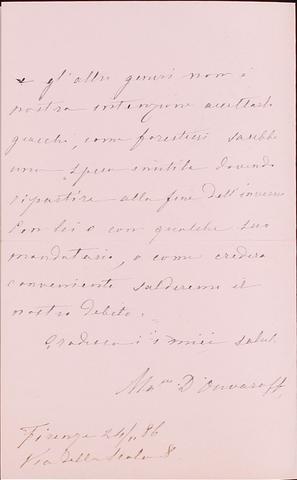 e gl'altri generi non è
nostra intenzione accettarlo
giacchè, come forestieri sarebbe
una spesa inutile dovendo
ripartire alla fine dell'inverno
Con lei o con qualche suo
mandatario, o come crederà
conveniente salderemo il
nostro debito.
Gradisca i miei saluti
D'Ouvaroff
Firenze 24/11 86
Via della Scala 8